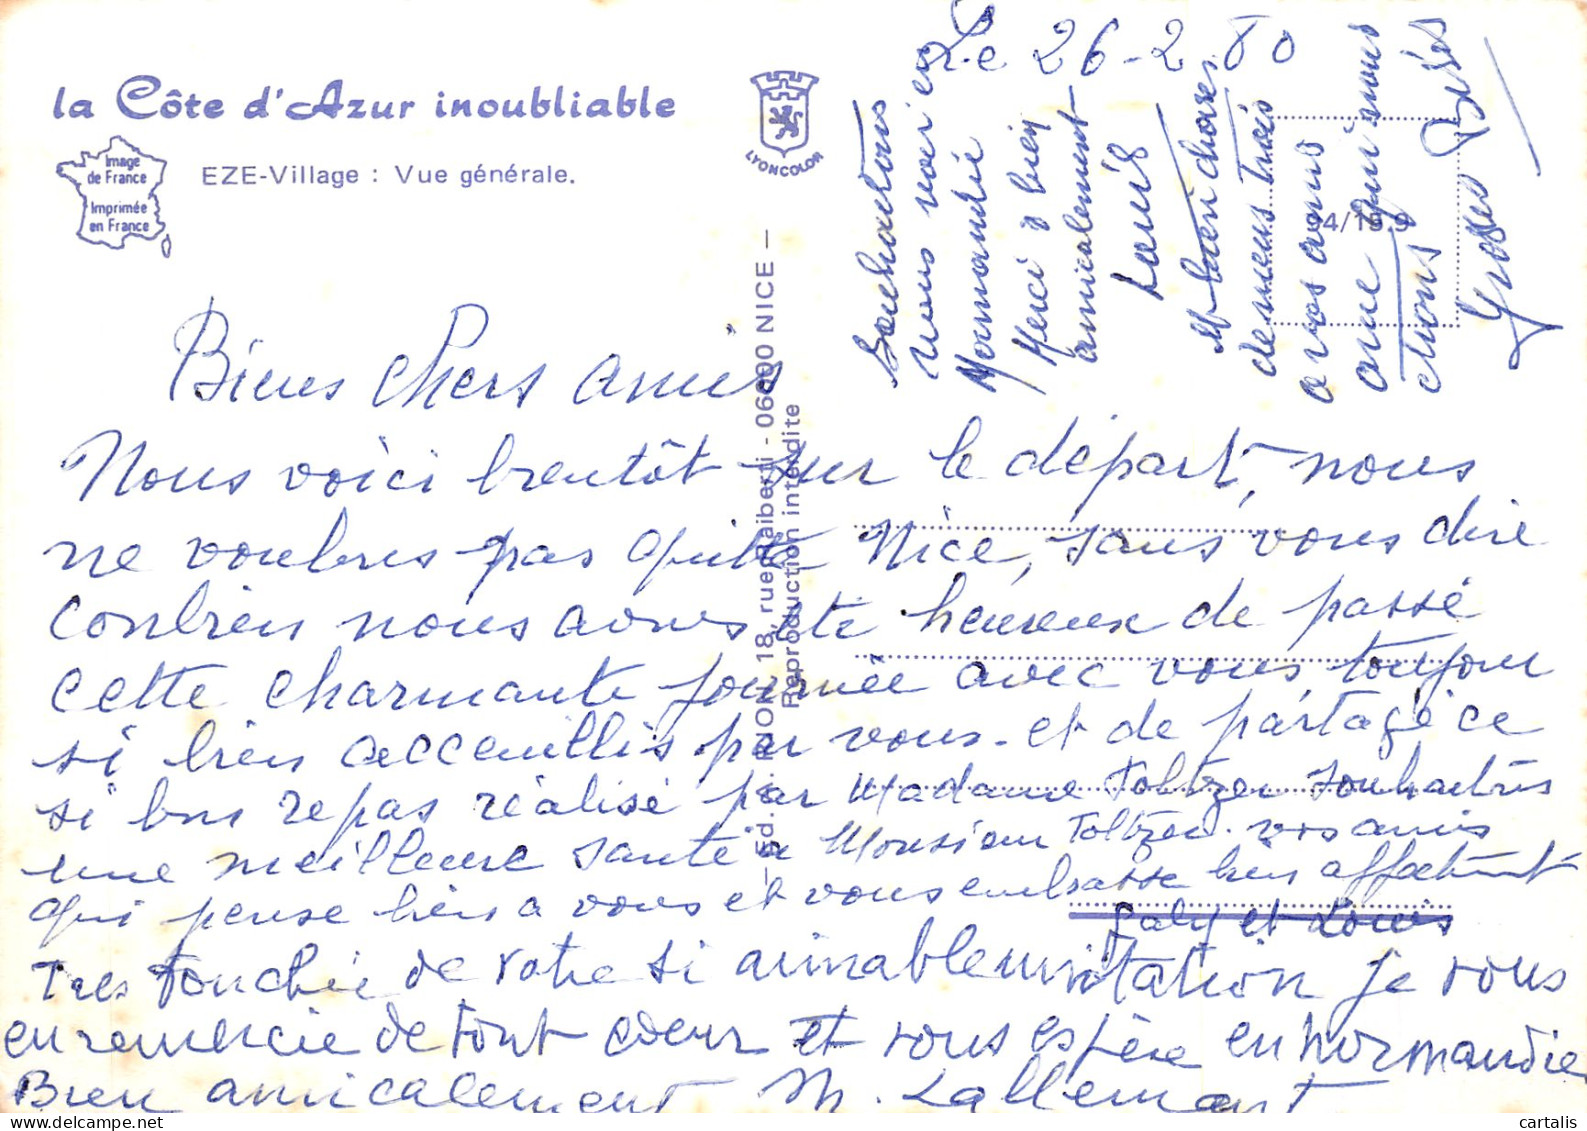 la Côte d'Azur inoubliable
Image
de France
Imprimée
en France
EZE-Village : Vue générale.
LYONCOLOR
Le 26-2-80
Bien chers amis
Nous voici bientôt sur le départ, nous
ne voulons pas quitté Nice, sans vous dire
combien nous avons été heureux de passé
cette charmante journée avec vous, toujour
si bien acceuillis par vous - et de partagé ce
si bon repas réalisé par Madame Toltzer souhaitons
une meilleure santé a Monsieur Toltzer. vos amis
qui pense bien a vous et vous embrasse bien affect
Gaby et Louis
Très touchée de votre si aimable invitation je vous
en remercie de tout coeur et vous espère en normandie
Bien amicalement M. Lallemant
Souhaitons
vous voir en
Normandie
Merci a bien
amicalement
Louis
bien choses
de nous trois
a vos amis
que nous
Grosses Bises
Reproduction interdite
18, rue Raiberti - 06000 NICE —